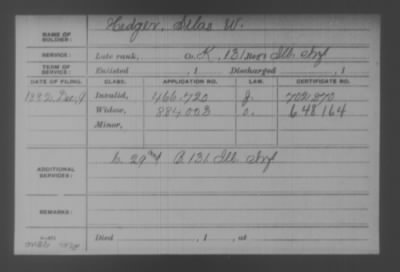 NAME OF SOLDIER: Hedger, Silas W.
SERVICE: Late rank, Co. K, 131 Ill. Inf
TERM OF SERVICE: Enlisted , 1 Discharged , 1
DATE OF FILING. CLASS. APPLICATION NO. LAW. CERTIFICATE NO.
Dec. 9 Invalid, 466.720 J.
Widow, 884.003 O. 648164
Minor,
ADDITIONAL SERVICES: C. 29 & 131 Ill. Inf
REMARKS:
Died , 1 , at